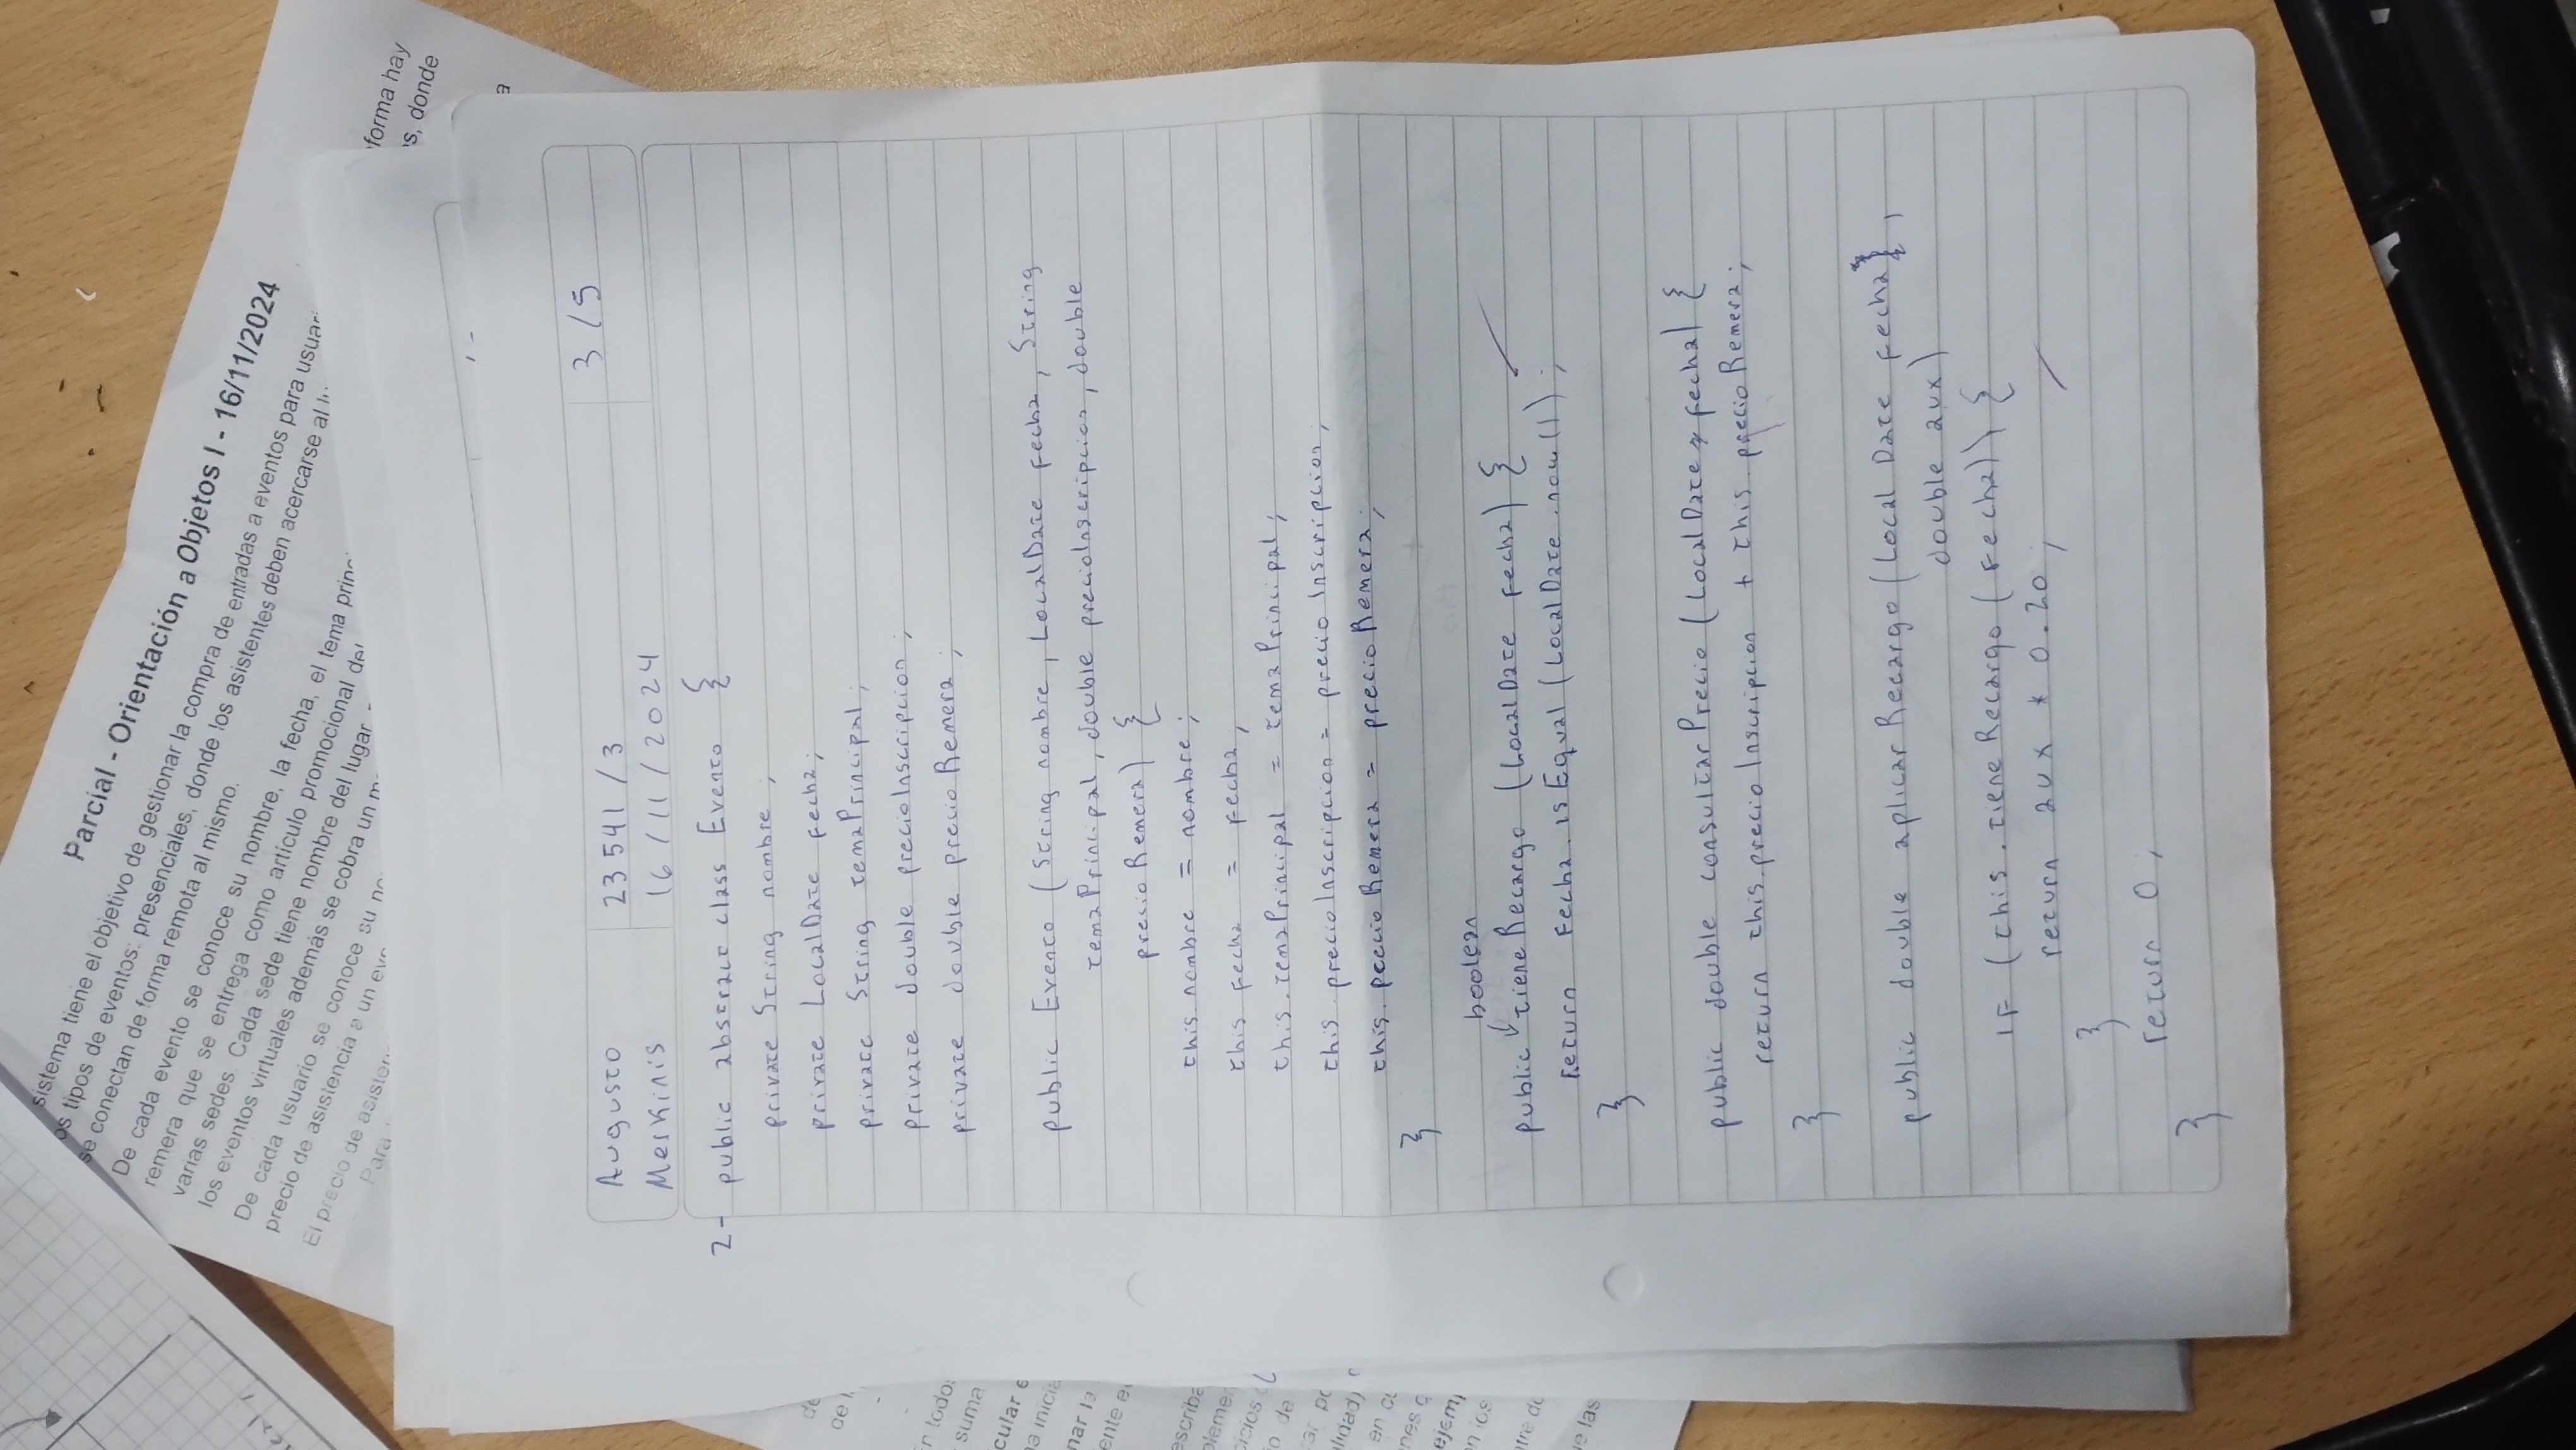 Parcial - Orientación a Objetos I - 16/11/2024
sistema tiene el objetivo de gestionar la compra de entradas a eventos para
os tipos de eventos: presenciales, donde los asistentes deben acercarse al
se conectan de forma remota al mismo.
De cada evento se conoce su nombre, la fecha, el tema
remera que se entrega como artículo promocional
varias sedes. Cada sede tiene nombre del lugar
los eventos virtuales además se cobra un
De cada usuario se conoce su
precio de asistencia a un
El precio de
Para
forma hay
donde
Augusto
Merkinis
23541/3
16/11/2024
3/5
2- public abstract class Evento {
private String nombre;
private LocalDate fecha;
private String temaPrincipal;
private double precioInscripcion;
private double precioRemera;
public Evento (String nombre, LocalDate fecha, String
temaPrincipal, double precioInscripcion, double
precioRemera) {
this.nombre = nombre;
this fecha = fecha;
this.temaPrincipal = temaPrincipal;
this.precioInscripcion = precioInscripcion;
this.precioRemera = precioRemera;
}
boolean
public tieneRecargo (LocalDate fecha) {
return fecha.isEqual (LocalDate.now());
}
public double consultarPrecio (LocalDate fecha) {
return this.precioInscripcion + this.precioRemera;
}
public double aplicarRecargo (LocalDate fecha,
double aux)
if (this.tieneRecargo (fecha)) {
return aux * 0.20;
}
return 0;
}